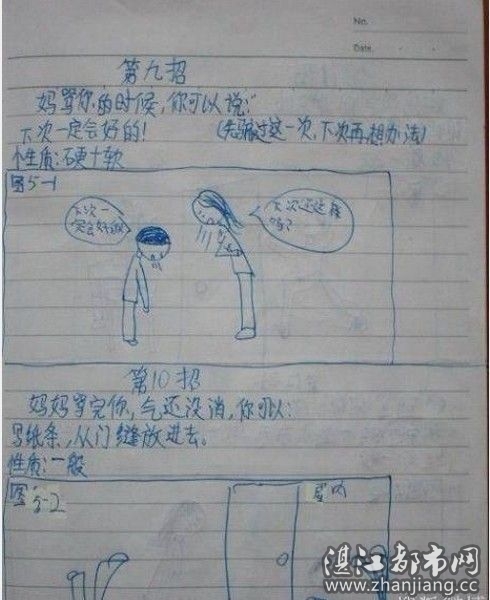 No.
Date
第九招
妈骂你的时候,你可以说:"
下次一定会好的! (先骗过这一次,下次再想办法)
性质:硬十软
图5-1
下次一
定会好的
下次还这样
吗?
第10招
妈妈骂完你,气还没消,你可以:
写纸条,从门缝放进去。
性质:一般
图
5-2
屋内
湛江都市网
www.zhanjiang.cc